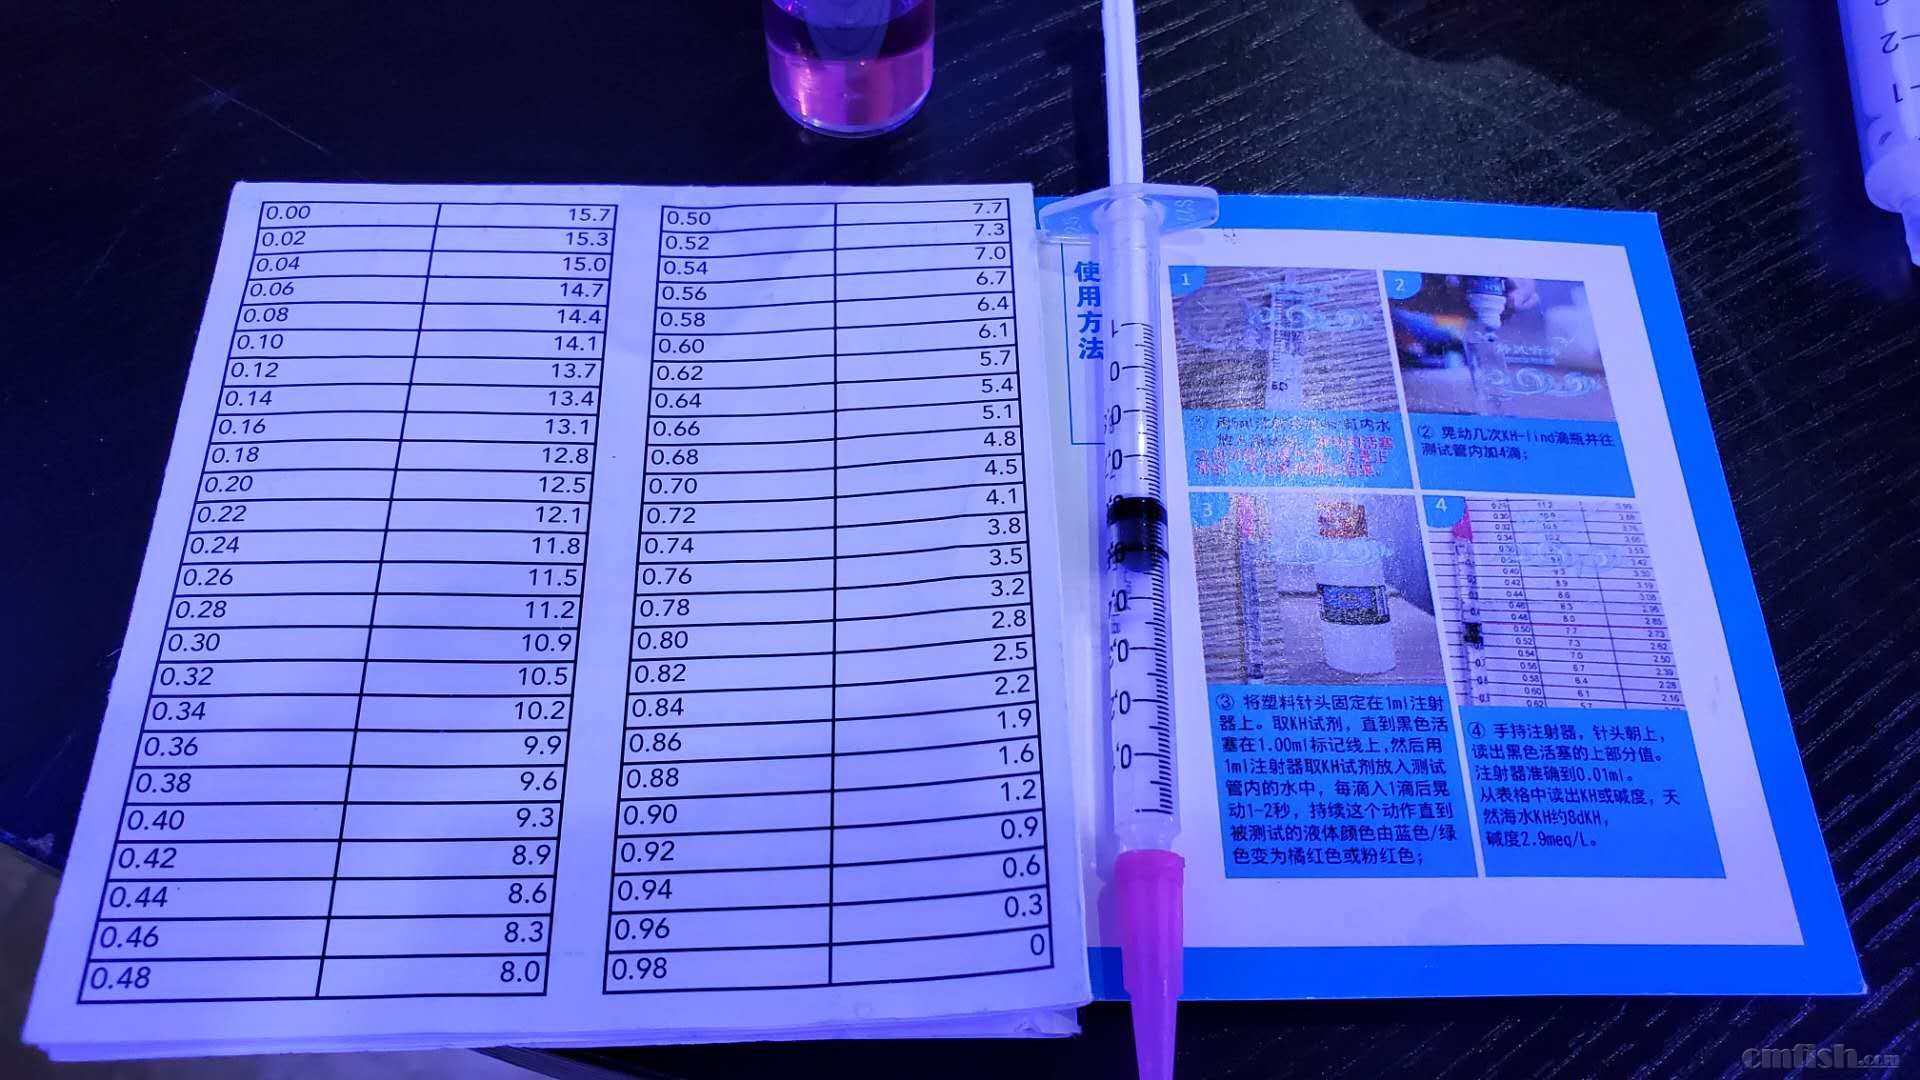 0.00 15.7
0.02 15.3
0.04 15.0
0.06 14.7
0.08 14.4
0.10 14.1
0.12 13.7
0.14 13.4
0.16 13.1
0.18 12.8
0.20 12.5
0.22 12.1
0.24 11.8
0.26 11.5
0.28 11.2
0.30 10.9
0.32 10.5
0.34 10.2
0.36 9.9
0.38 9.6
0.40 9.3
0.42 8.9
0.44 8.6
0.46 8.3
0.48 8.0
0.50 7.7
0.52 7.3
0.54 7.0
0.56 6.7
0.58 6.4
0.60 6.1
0.62 5.7
0.64 5.4
0.66 5.1
0.68 4.8
0.70 4.5
0.72 4.1
0.74 3.8
0.76 3.5
0.78 3.2
0.80 2.8
0.82 2.5
0.84 2.2
0.86 1.9
0.88 1.6
0.90 1.2
0.92 0.9
0.94 0.6
0.96 0.3
0.98 0
使用方法
1
2
② 晃动几次KH-lind滴瓶并往
测试管内加4滴；
3
4
③ 将塑料针头固定在1ml注射
器上。取KH试剂，直到黑色活
塞在1.00ml标记线上,然后用
1ml注射器取KH试剂放入测试
管内的水中，每滴入1滴后晃
动1-2秒，持续这个动作直到
被测试的液体颜色由蓝色/绿
色变为橘红色或粉红色；
④ 手持注射器，针头朝上，
读出黑色活塞的上部分值。
注射器准确到0.01ml。
从表格中读出KH或碱度，天
然海水KH约8dKH，
碱度2.9meq/L。
2
1
cmfish.com